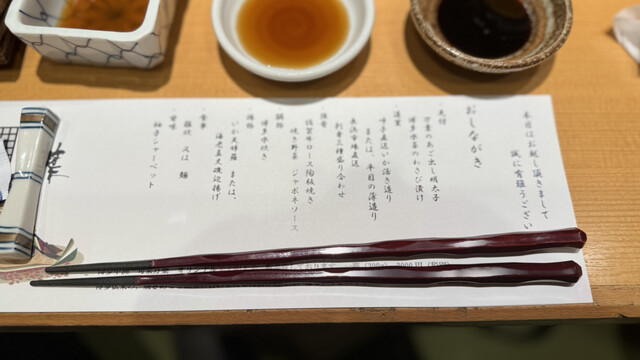 本日はお越し頂きまして
誠に有難うござい
おしながき
・先付
万書のあご出し明太子
博多水菜のわさび漬け
・造里
呼子直送いか活き造り
または、平目の薄造り
長浜市場直送
刺身三種盛り合わせ
・強肴
佐賀牛ロース陶板焼き
焼き野菜 ジャポネソース
・鍋物
博多水炊き
・揚物
いか天婦羅 または、
海老真丈磯辺揚げ
・食事
雑炊 又は 麺
・甘味
柚子シャーベット